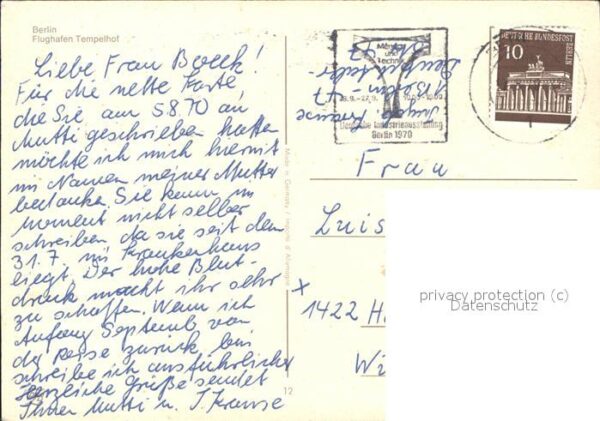 Berlin
Flughafen Tempelhof
Liebe Frau Boeck!
Für die nette Karte
die Sie am 5.8.70 an
Mutti geschrieben hatten
möchte ich mich hiermit
im Namen meiner Mutter
bedanken. Sie kann im
Moment nicht selber
schreiben da sie seit dem
31.7. im Krankenhaus
liegt. Der hohe Blut-
druck macht ihr sehr
zu schaffen. Wenn ich
Anfang Septemb. von
der Reise zurück bin
schreibe ich ausführlicher
Herzliche Grüße sendet
Ihnen Mutti u. I. Krause
Made in Germany / Imprimé d'Allemagne
12
Mensch
und
Technik
Deutsche Industrieausstellung
Berlin 1970
Krause
1 Berlin-47
DEUTSCHE BUNDESPOST
BERLIN
10
Frau
Luis
1422 H
Wi
privacy protection (c)
Datenschutz